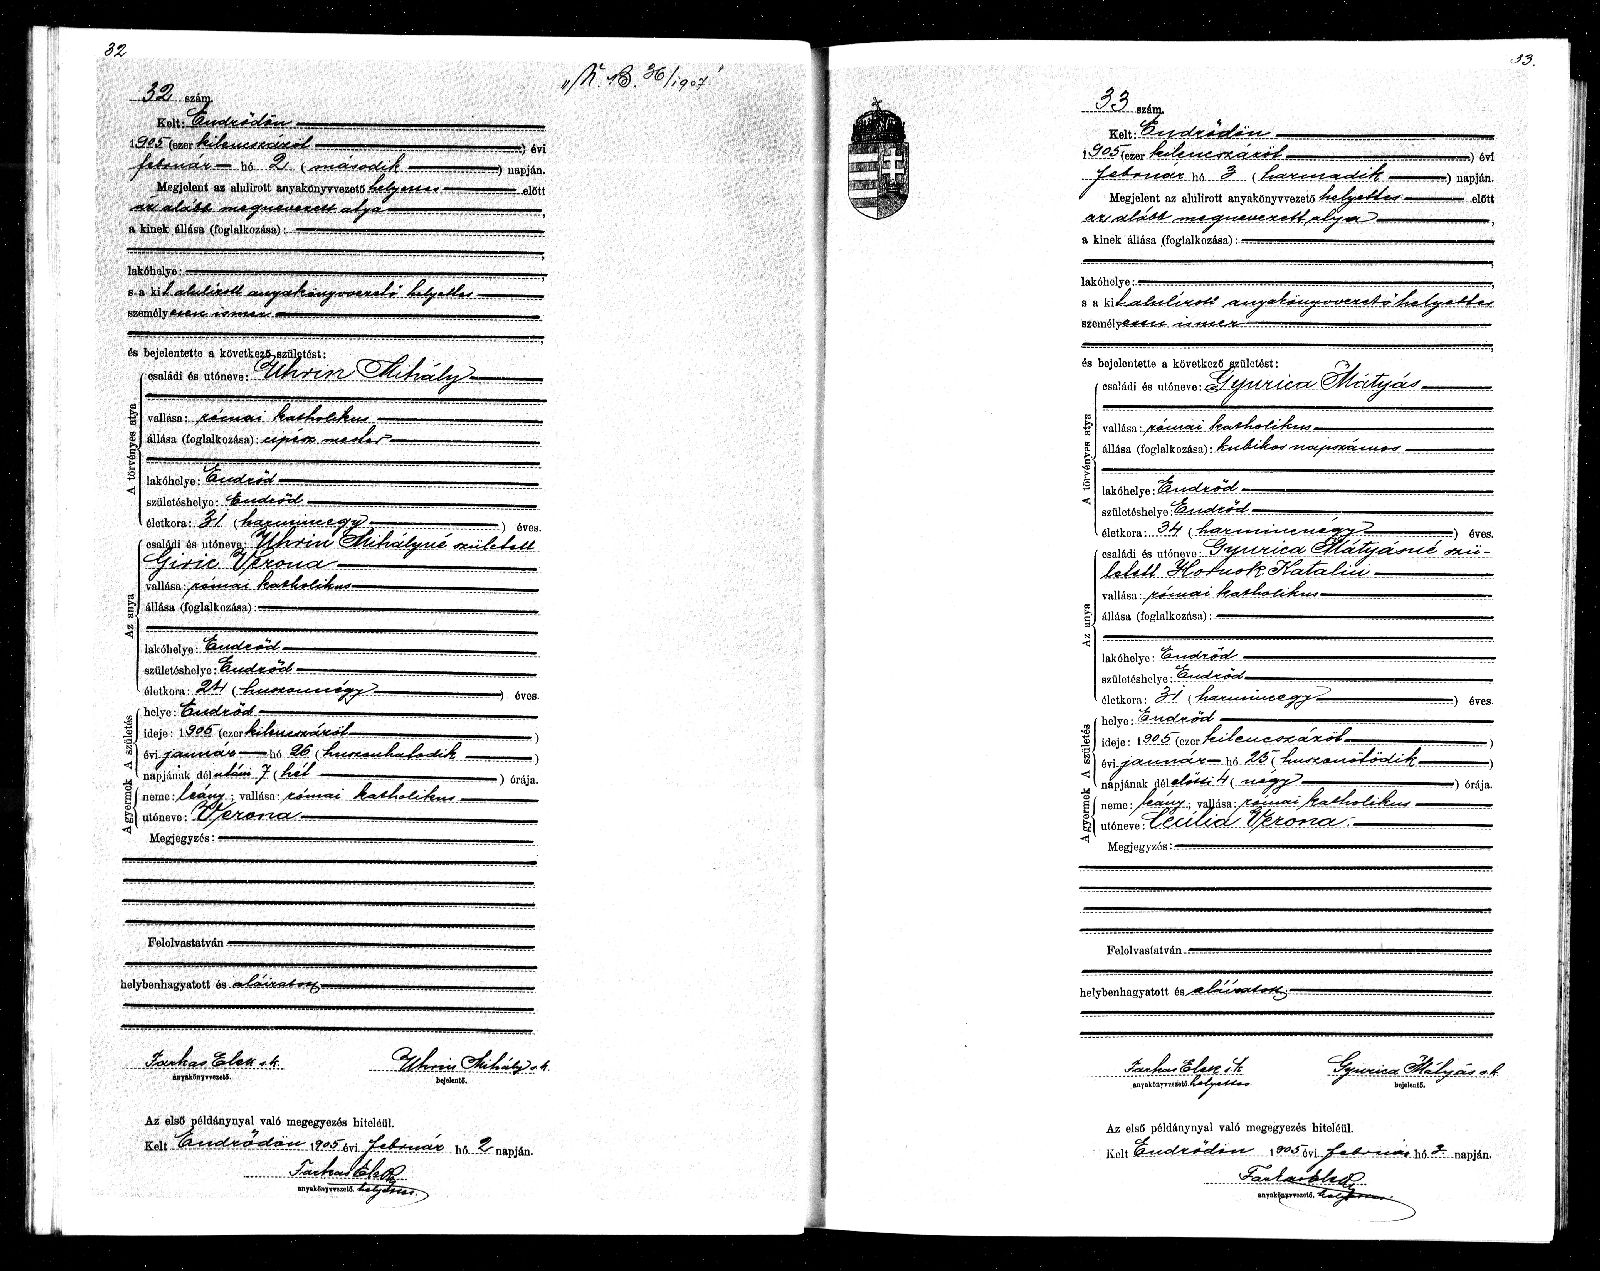 32
32 szám.
Kelt: Endrődön
1905 (ezer kilencszázöt ) évi
február hó 2 (második ) napján.
Megjelent az alulirott anyakönyvvezető helyettes előtt
az alább megnevezett atya ,
a kinek állása (foglalkozása):
lakóhelye:
s a kit alulírott anyakönyvvezető helyettes
személyesen ismer
és bejelentette a következő születést:
A törvényes atya
családi és utóneve: Uhrin Mihály
vallása: római katholikus
állása (foglalkozása): cipész mester
lakóhelye: Endrőd
születéshelye: Endrőd
életkora: 31 (harminczegy ) éves.
Az anya
családi és utóneve: Uhrin Mihályné született
Giric Verona
vallása: római katholikus
állása (foglalkozása):
lakóhelye: Endrőd
születéshelye: Endrőd
életkora: 24 (huszonnégy ) éves.
A gyermek A születés
helye: Endrőd
ideje: 1905 (ezer kilencszázöt )
évi január hó 26 (huszonhatodik )
napjának délutáni 7 (hét ) órája.
neme: leány; vallása: római katholikus
utóneve: Verona
Megjegyzés:
Felolvastatván
helybenhagyatott és aláiratott
Farkas Elek s.k. Uhrin Mihály s.k.
anyakönyvvezető. bejelentő.
Az első példánynyal való megegyezés hiteléül.
Kelt Endrődön 1905 évi február hó 2 napján.
Farkas Elek
anyakönyvvezető. helyettes.
33.
33 szám.
Kelt: Endrődön
1905 (ezer kilencszázöt ) évi
február hó 3 (harmadik ) napján.
Megjelent az alulirott anyakönyvvezető helyettes előtt
az alább megnevezett atya ,
a kinek állása (foglalkozása):
lakóhelye:
s a kit alulírott anyakönyvvezető helyettes
személyesen ismer
és bejelentette a következő születést:
A törvényes atya
családi és utóneve: Gyurica Mátyás
vallása: római katholikus
állása (foglalkozása): kubikos napszámos
lakóhelye: Endrőd
születéshelye: Endrőd
életkora: 34 (harmincnégy ) éves.
Az anya
családi és utóneve: Gyurica Mátyásné szü-
letett Hornok Katalin
vallása: római katholikus
állása (foglalkozása):
lakóhelye: Endrőd
születéshelye: Endrőd
életkora: 31 (harmincegy ) éves.
A gyermek A születés
helye: Endrőd
ideje: 1905 (ezer kilencszázöt )
évi január hó 25 (huszonötödik )
napjának délelőtti 4 (négy ) órája.
neme: leány; vallása: római katholikus
utóneve: Cecilia Verona.
Megjegyzés:
Felolvastatván
helybenhagyatott és aláíratott
Farkas Elek s.k. Gyurica Mátyás s.k.
anyakönyvvezető. helyettes bejelentő.
Az első példánynyal való megegyezés hiteléül.
Kelt Endrődön 1905 évi február hó 3 napján.
Farkas Elek
anyakönyvvezető. helyettes.